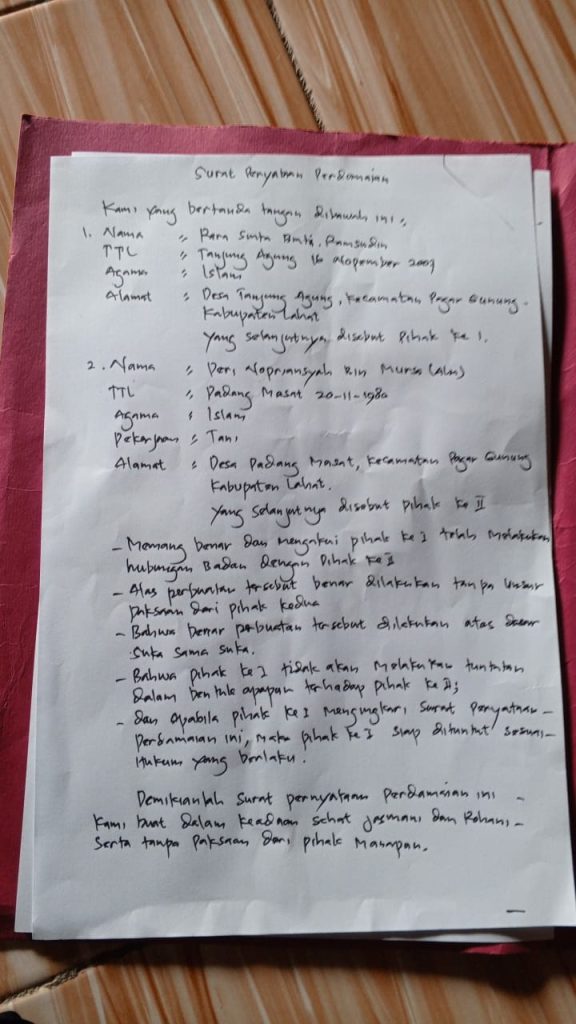 Surat Penyataan Perdamaian
Kami yang bertanda tangan dibawah ini :
1. Nama : Rara Sinta Binti, Ramsudin
TTL : Tanjung Agung 16 Nopember 2003
Agama : Islam
Alamat : Desa Tanjung Agung, Kecamatan Pagar Gunung -
Kabupaten Lahat
Yang selanjutnya disebut Pihak Ke 1.
2. Nama : Deri Nopriansyah Bin Mursa (Alm)
TTL : Padang Masat 20-11-1980
Agama : Islam
Pekerjaan : Tani
Alamat : Desa Padang Masat, Kecamatan Pagar Gunung
Kabupaten Lahat.
Yang selanjutnya disebut pihak Ke II
- Memang benar dan mengakui pihak Ke I telah Melakukan
hubungan Badan dengan Pihak Ke II
- Atas perbuatan tersebut benar dilakukan tanpa Unsur
paksaan dari pihak kedua
- Bahwa benar perbuatan tersebut dilakukan atas dasar
Suka sama suka.
- Bahwa pihak ke I tidak akan Melakukan tuntutan
dalam bentuk apapun terhadap pihak ke II;
- dan apabila pihak Ke I Mengingkari Surat Penyataan -
Perdamaian ini, Maka pihak Ke I siap dituntut Sesuai -
Hukum yang berlaku.
Demikianlah Surat pernyataan Perdamaian ini -
Kami buat dalam keadaan sehat Jasmani dan Rohani -
Serta tanpa Paksaan dari pihak Manapun.